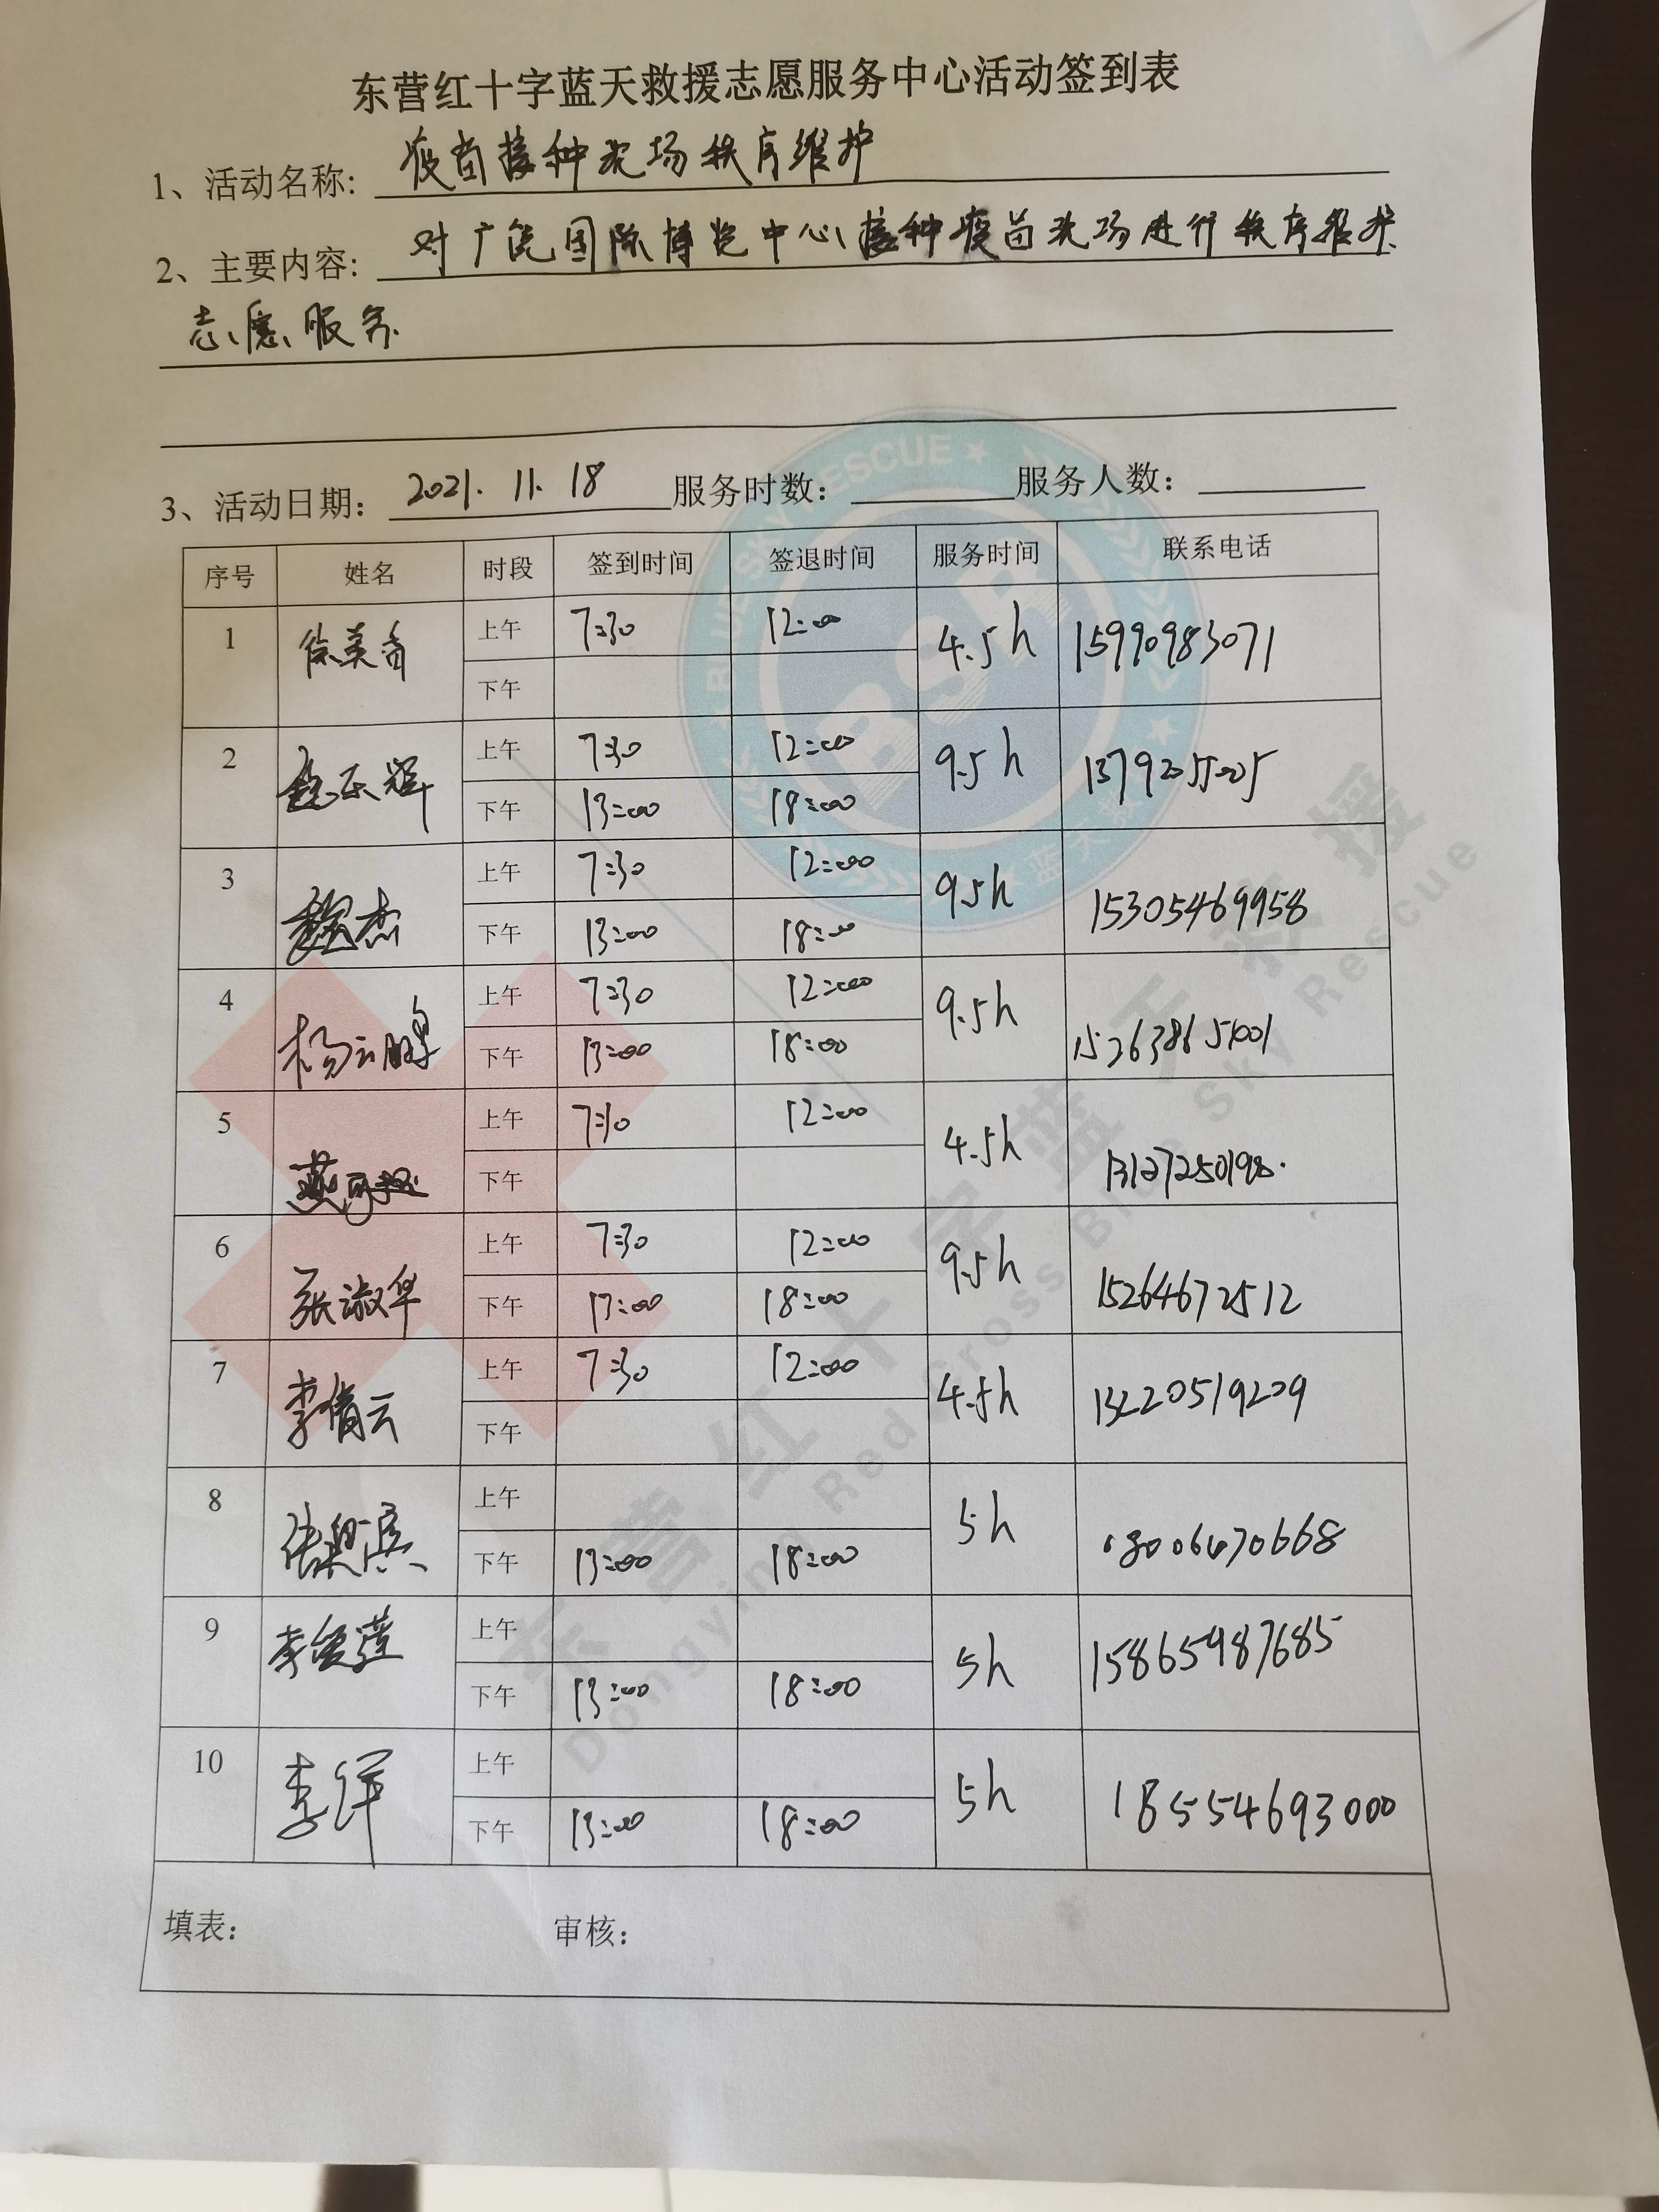 东营红十字蓝天救援志愿服务中心活动签到表
1、活动名称: 疫苗接种现场秩序维护
2、主要内容: 对广饶国际博览中心接种疫苗现场进行秩序维护
志愿服务
3、活动日期: 2021.11.18 服务时数: 服务人数:
序号 姓名 时段 签到时间 签退时间 服务时间 联系电话
1 徐英香 上午 7:30 12:00 4.5h 15990983071
下午
2 上午 7:30 12:00 9.5h
下午 13:00 18:00
3 魏杰 上午 7:30 12:00 9.5h 15305469958
下午 13:00 18:00
4 杨云鹏 上午 7:30 12:00 9.5h
下午 13:00 18:00
5 上午 7:30 12:00 4.5h
下午
6 张淑华 上午 7:30 12:00 9.5h 15264672512
下午 13:00 18:00
7 李倩云 上午 7:30 12:00 4.5h
下午
8 上午 5h
下午 13:00 18:00
9 上午 5h 15865987685
下午 13:00 18:00
10 李洋 上午 5h 18554693000
下午 13:00 18:00
填表: 审核:
BLUE SKY RESCUE
BSR
蓝天救援
东营红十字蓝天救援
Dongying Red Cross Blue Sky Rescue